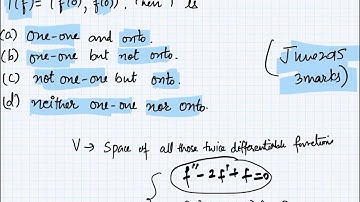 T(f) = (f'(0), f(0)). Then T is
(a) one-one and onto.
(b) one-one but not onto.
(c) not one-one but onto.
(d) neither one-one nor onto.
(June 2015
3 marks)
V → Space of all those twice differentiable functions
f'' - 2f' + f = 0